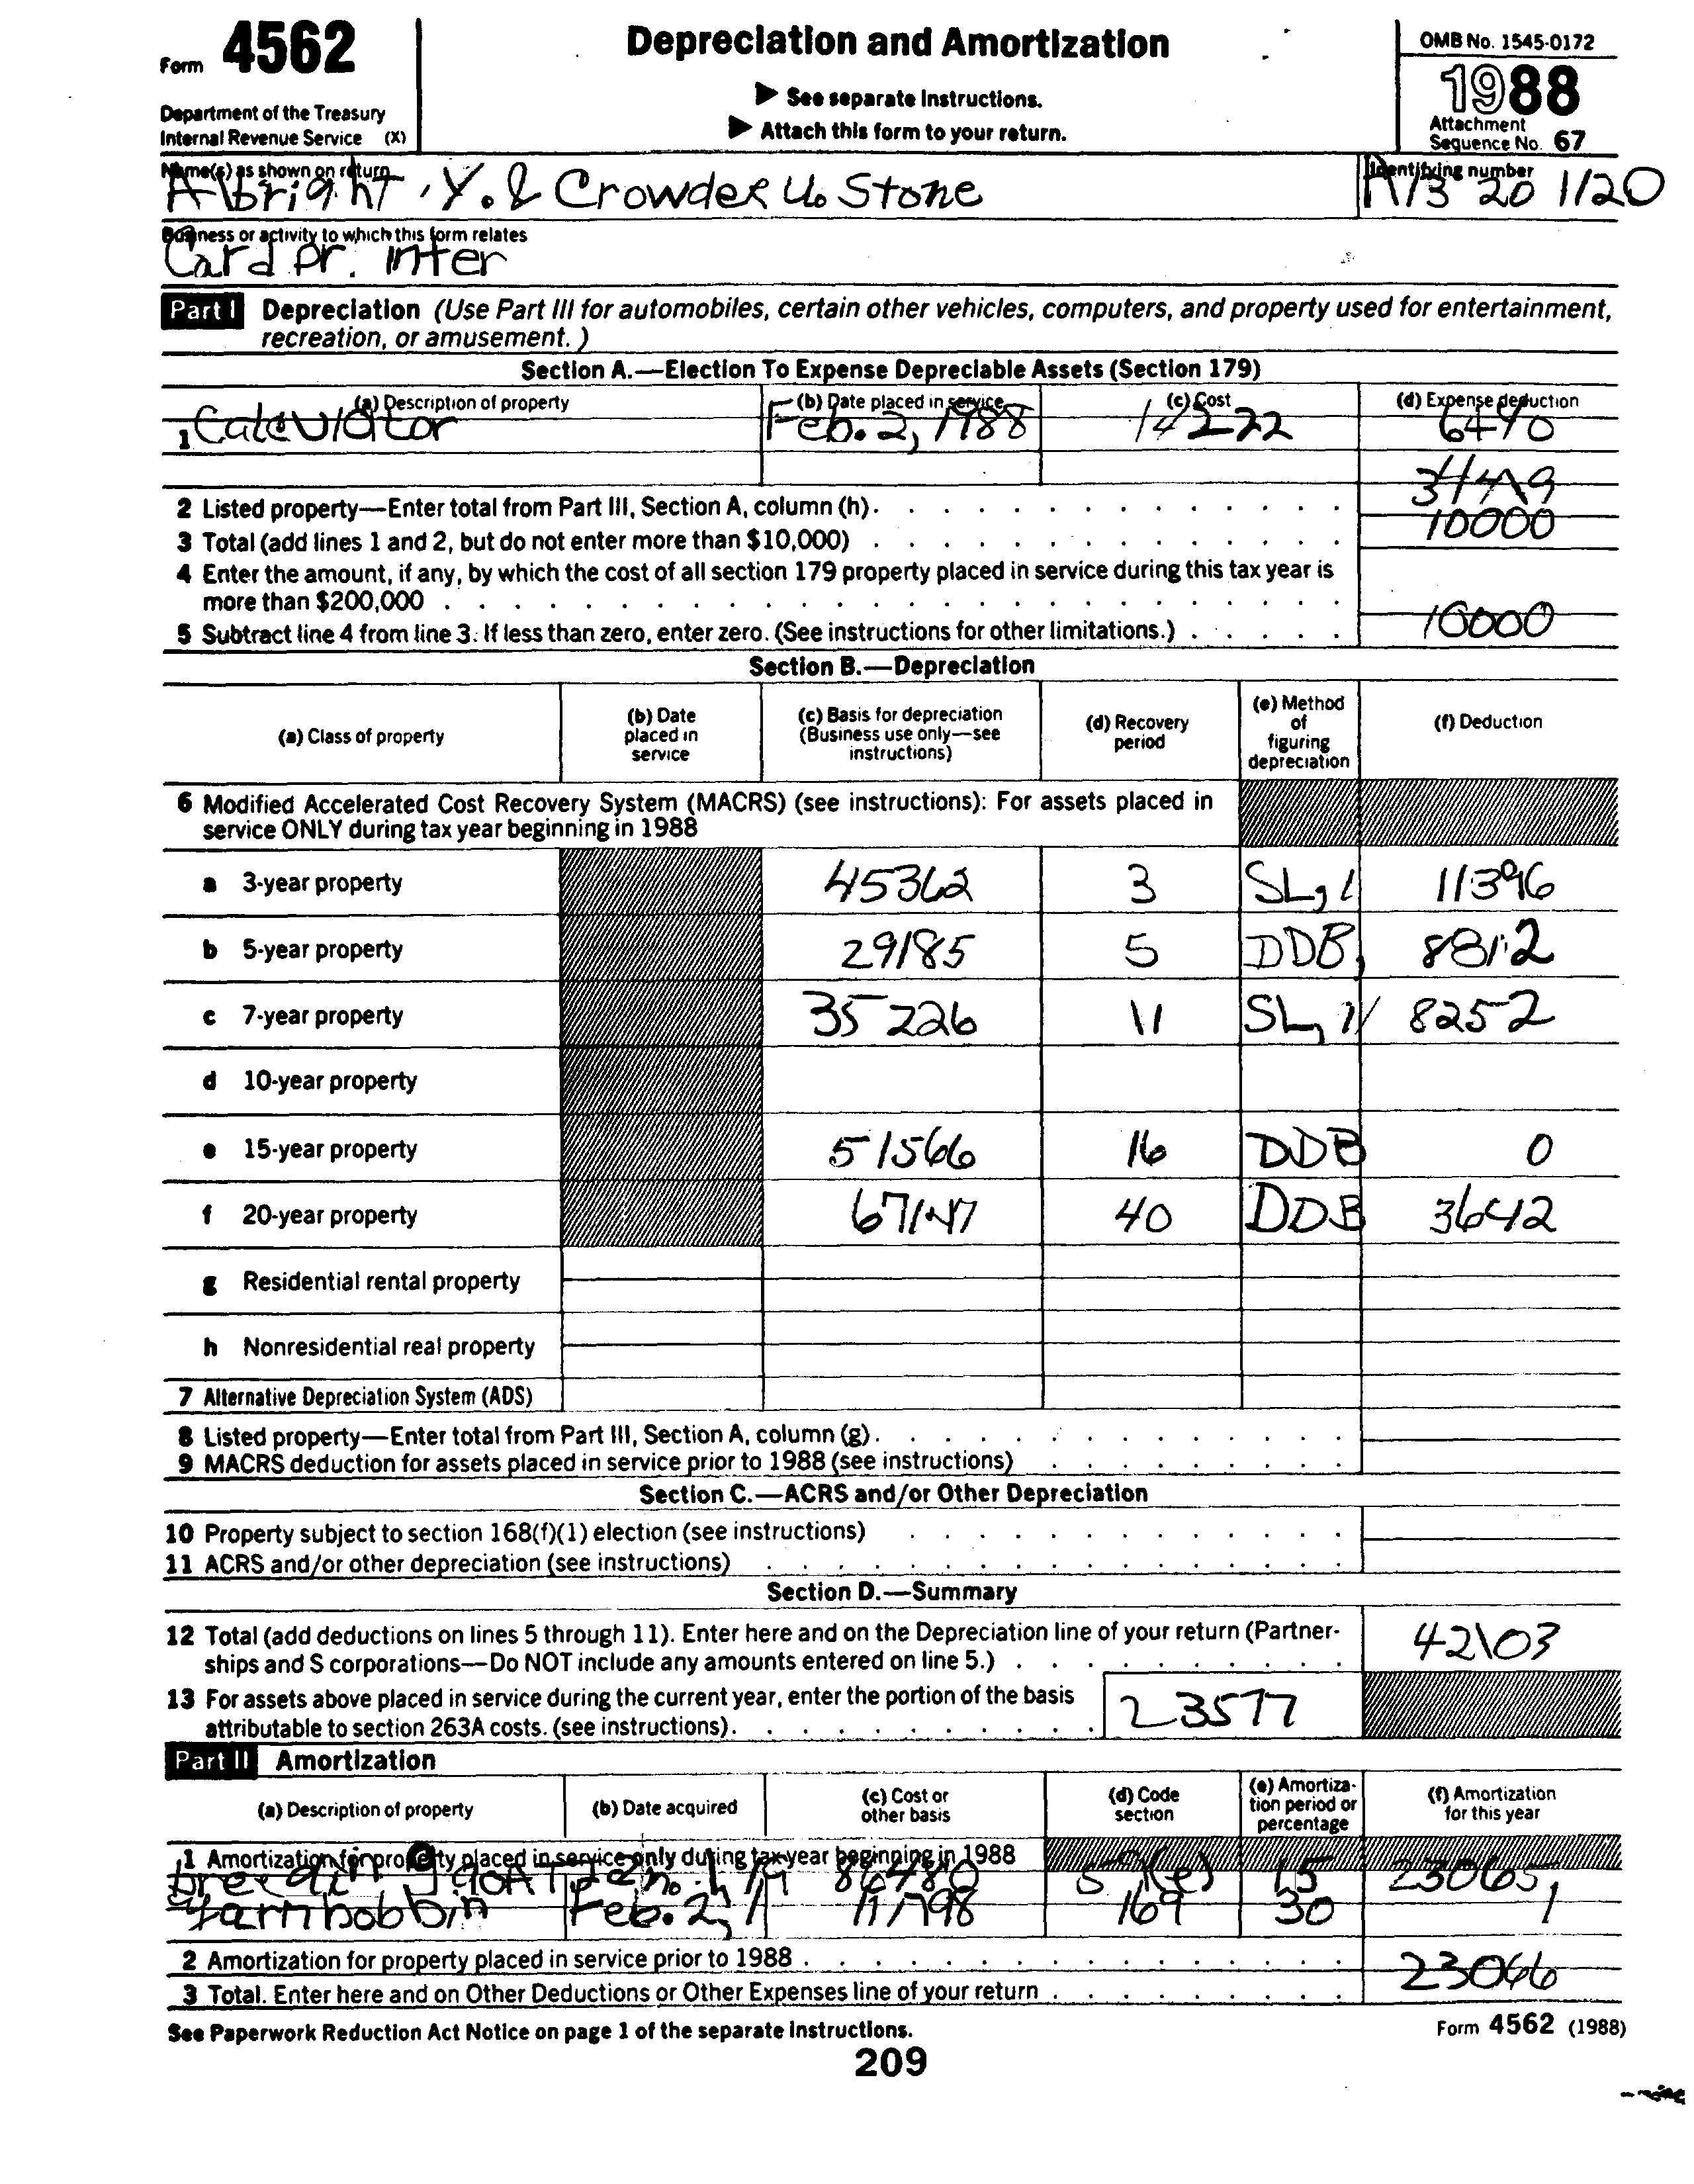 Form 4562
Department of the Treasury
Internal Revenue Service (X)
Depreciation and Amortization
▶ See separate Instructions.
▶ Attach this form to your return.
OMB No. 1545-0172
1988
Attachment
Sequence No. 67
Name(s) as shown on return
Albright, Y. & Crowder U. Stone
Identifying number
20 1120
Business or activity to which this form relates
Card pr. inter
Part I Depreciation (Use Part III for automobiles, certain other vehicles, computers, and property used for entertainment,
recreation, or amusement. )
Section A.—Election To Expense Depreciable Assets (Section 179)
(a) Description of property (b) Date placed in service (c) Cost (d) Expense deduction
1 Calculator Feb. 2, 1988 14222 6490
2 Listed property—Enter total from Part III, Section A, column (h).
3 Total (add lines 1 and 2, but do not enter more than $10,000) 10000
4 Enter the amount, if any, by which the cost of all section 179 property placed in service during this tax year is
more than $200,000
5 Subtract line 4 from line 3. If less than zero, enter zero. (See instructions for other limitations.) 10000
Section B.—Depreciation
(a) Class of property (b) Date placed in service (c) Basis for depreciation (Business use only—see instructions) (d) Recovery period (e) Method of figuring depreciation (f) Deduction
6 Modified Accelerated Cost Recovery System (MACRS) (see instructions): For assets placed in
service ONLY during tax year beginning in 1988
a 3-year property 45362 3 SL, 11396
b 5-year property 29185 5 DDB, 8812
c 7-year property 35226 11 SL, 8252
d 10-year property
e 15-year property 51566 16 DDB 0
f 20-year property 67147 40 DDB 3642
g Residential rental property
h Nonresidential real property
7 Alternative Depreciation System (ADS)
8 Listed property—Enter total from Part III, Section A, column (g).
9 MACRS deduction for assets placed in service prior to 1988 (see instructions)
Section C.—ACRS and/or Other Depreciation
10 Property subject to section 168(f)(1) election (see instructions)
11 ACRS and/or other depreciation (see instructions)
Section D.—Summary
12 Total (add deductions on lines 5 through 11). Enter here and on the Depreciation line of your return (Partner-
ships and S corporations—Do NOT include any amounts entered on line 5.) 42103
13 For assets above placed in service during the current year, enter the portion of the basis
attributable to section 263A costs. (see instructions). 23577
Part II Amortization
(a) Description of property (b) Date acquired (c) Cost or other basis (d) Code section (e) Amortiza-tion period or percentage (f) Amortization for this year
1 Amortization for property placed in service only during tax year beginning in 1988
86480 15 23065
Yarn bobbin Feb. 2, 1 11798 169 30 1
2 Amortization for property placed in service prior to 1988
3 Total. Enter here and on Other Deductions or Other Expenses line of your return 23066
See Paperwork Reduction Act Notice on page 1 of the separate Instructions.
Form 4562 (1988)
209